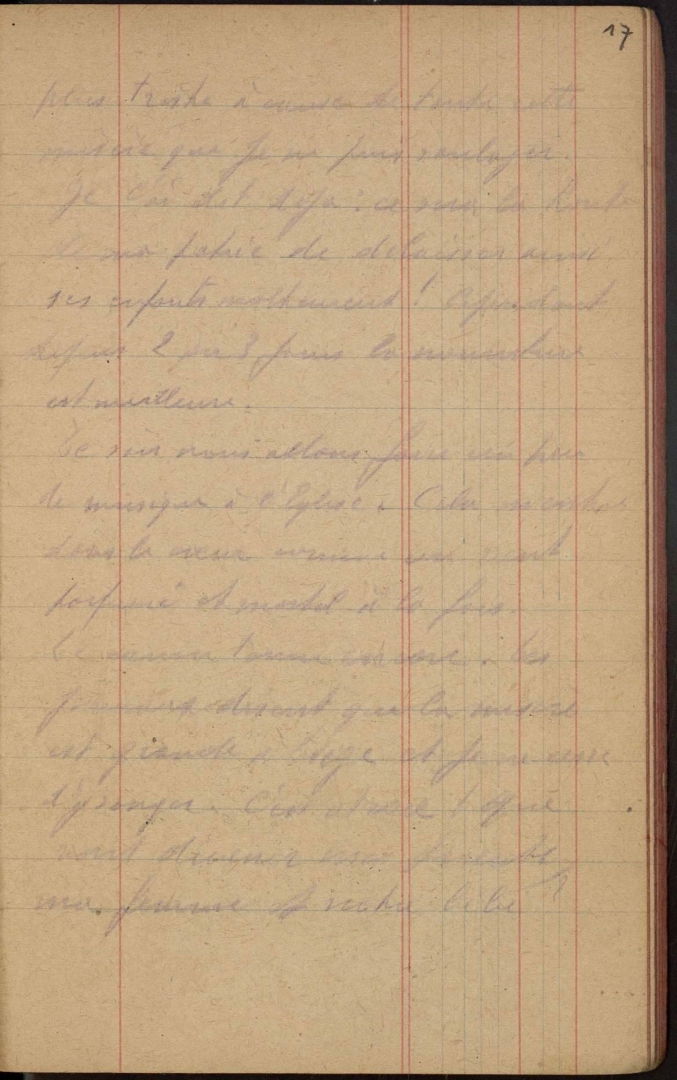 17
plus triste à cause de toute cette
misère que je ne puis soulager.
Je l'ai dit déja : ce sera la honte
de ma patrie de délaisser ainsi
ses enfants malheureux ! Cependant
depuis 2 ou 3 jours la nourriture
est meilleure.
Le soir nous allons faire un peu
de musique à l'Eglise. Cela m'entre
dans le cœur comme un vent
parfumé et mortel à la fois.
Le canon tonne encore. Les
journaux disent que la misère
est grande à Liège et je ne cesse
d'y songer. C'est atroce ! Que
vont devenir mes parents,
ma femme et notre bébé ?